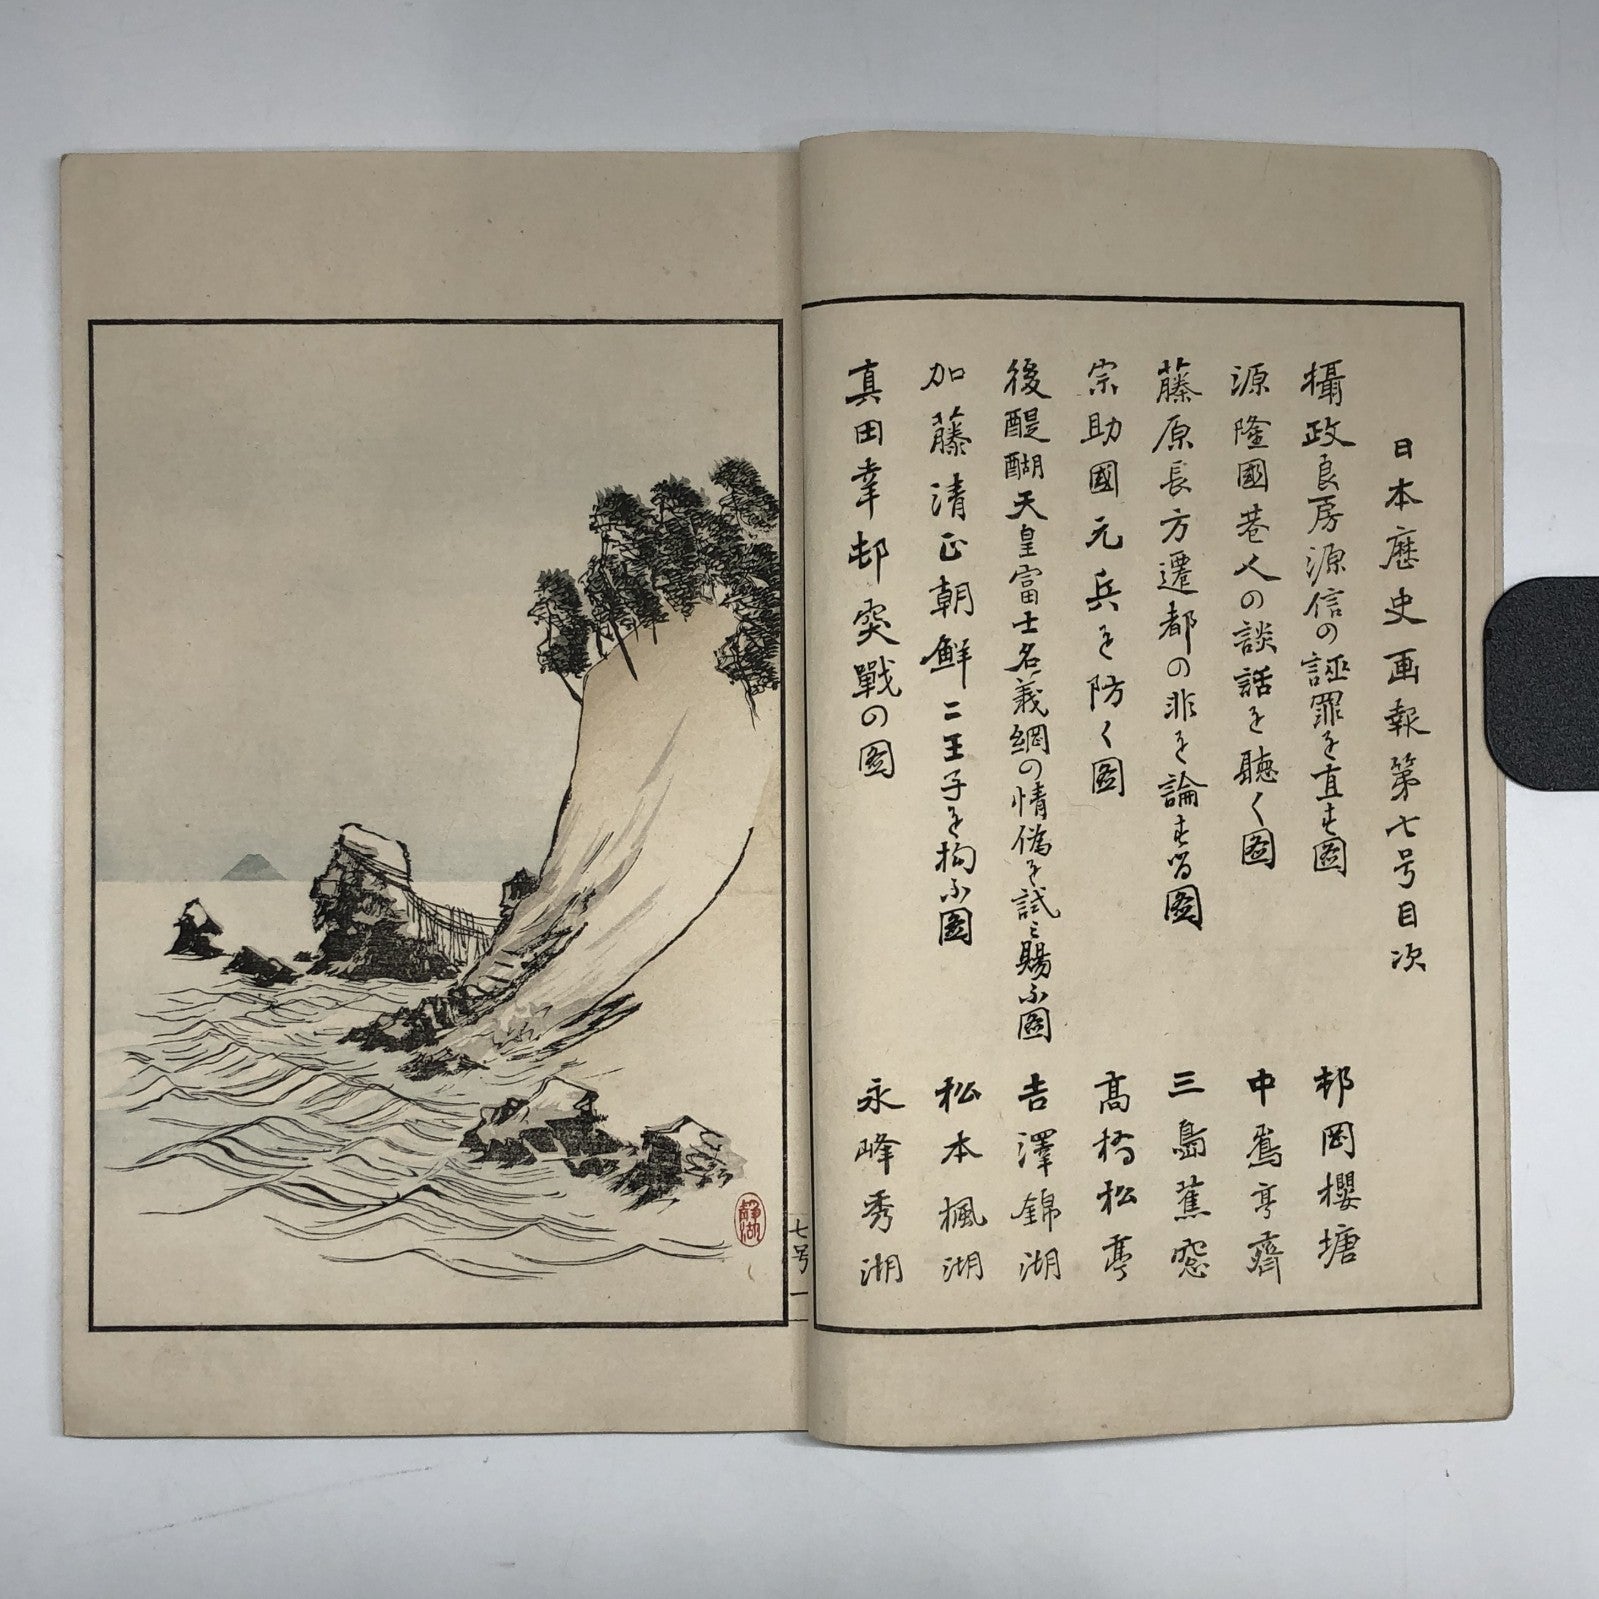 日本歴史画報第七号目次
攝政良房源信の誣罪を直す圖
邨岡櫻塘
源隆國巷人の談話を聽く圖
中島亨齋
藤原長方遷都の非を論する圖
三島蕉窓
宗助國元兵を防く圖
高橋松亭
後醍醐天皇富士名義綱の情偽を試ミ賜ふ圖
吉澤錦湖
加藤清正朝鮮二王子を拘ふ圖
松本楓湖
真田幸邨突戰の圖
永峰秀湖
七号 一
静湖